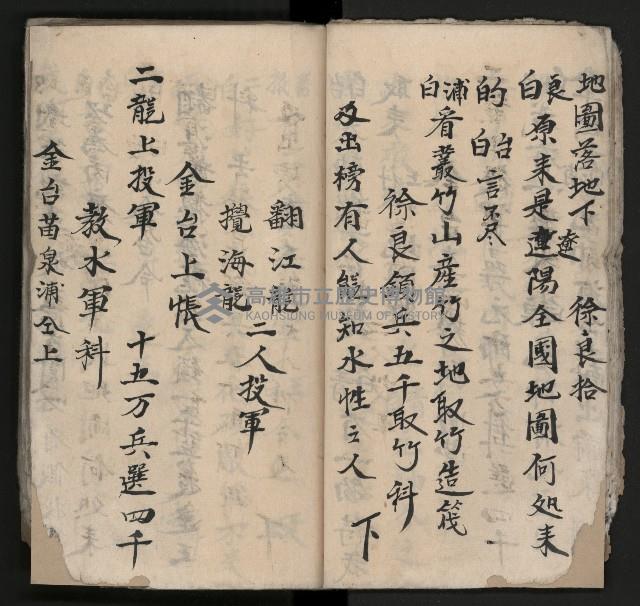 地圖落地下　徐良拾
良白原来是連遼陽全國地圖何処来
的　台白言尽
浦白看叢竹山產竹之地取竹造筏
徐良領兵五千取竹科
及出榜有人能知水性之人　下
翻江龍
攪海龍　二人投軍
金台上帳
二龍上投軍　十五万兵選四千
教水軍科
金台苗泉浦仝上
高雄市立歷史博物館
KAOHSIUNG MUSEUM OF HISTORY